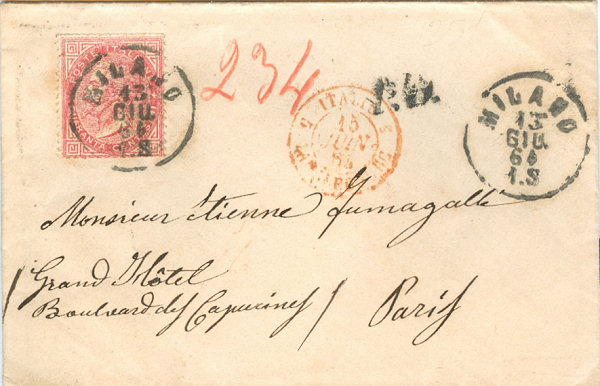 POSTE ITALIANE
MILANO
13
GIU
64
1.S
234
ITALIE
15
JUIN
64
P.D.
MILANO
13
GIU
64
1.S
Monsieur Étienne Fumagalli
Grand Hôtel
Boulevard des Capucines / Paris